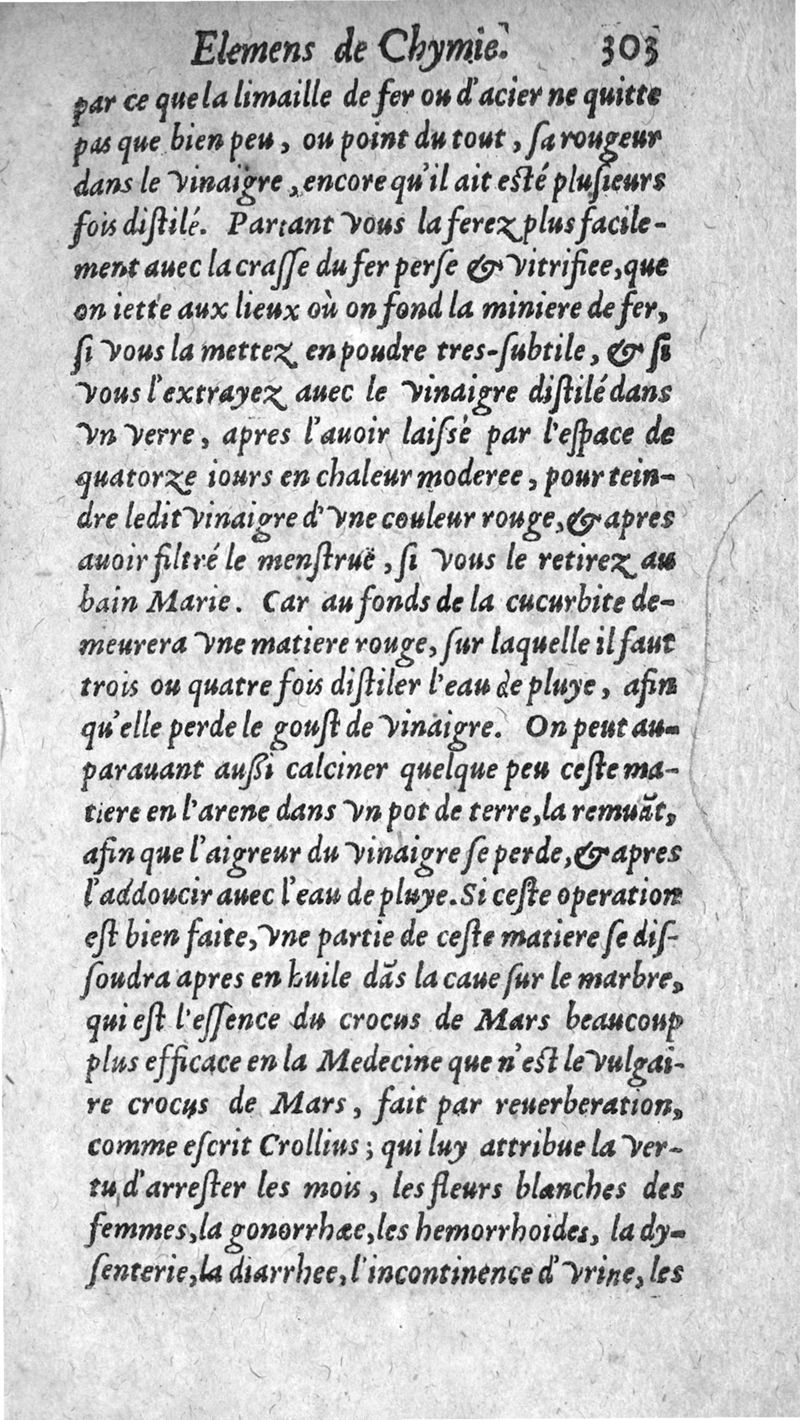 Elemens de Chymie. 303
par ce que la limaille de fer ou d'acier ne quitte
pas que bien peu, ou point du tout, ſa rougeur
dans le vinaigre, encore qu'il ait eſté pluſieurs
fois diſtilé. Partant vous la ferez plus facile-
ment auec la craſſe du fer perſe & vitrifiee, que
on iette aux lieux où on fond la miniere de fer,
ſi vous la mettez en poudre tres-ſubtile, & ſi
vous l'extrayez auec le vinaigre diſtilé dans
vn verre, apres l'auoir laiſsè par l'eſpace de
quatorze iours en chaleur moderee, pour tein-
dre ledit vinaigre d'vne couleur rouge, & apres
auoir filtré le menſtruë, ſi vous le retirez au
bain Marie. Car au fonds de la cucurbite de-
meurera vne matiere rouge, ſur laquelle il faut
trois ou quatre fois diſtiler l'eau de pluye, afin
qu'elle perde le gouſt de vinaigre. On peut au-
parauant auſſi calciner quelque peu ceſte ma-
tiere en l'arene dans vn pot de terre, la remuãt,
afin que l'aigreur du vinaigre ſe perde, & apres
l'addoucir auec l'eau de pluye. Si ceſte operation
eſt bien faite, vne partie de ceſte matiere ſe diſ-
ſoudra apres en huile dãs la caue ſur le marbre,
qui eſt l'eſſence du crocus de Mars beaucoup
plus efficace en la Medecine que n'eſt le vulgai-
re crocus de Mars, fait par reuerberation,
comme eſcrit Crollius; qui luy attribue la ver-
tu d'arreſter les mois, les fleurs blanches des
femmes, la gonorrhæe, les hemorrhoides, la dy-
ſenterie, la diarrhee, l'incontinence d'vrine, les